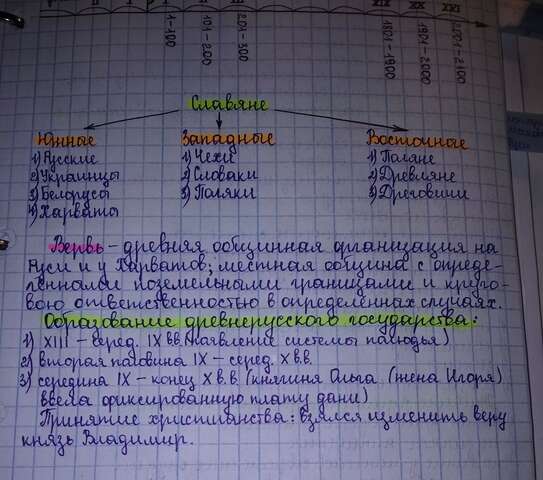 XIX XX XXI
1-100 101-200 201-300 1801-1900 1901-2000 2001-2100
Славяне
Южные Западные Восточные
1) Русские 1) Чехи 1) Поляне
2) Украинцы 2) Словаки 2) Древляне
3) Белорусы 3) Поляки 3) Дреговичи
4) Харваты
Вервь - древняя общинная организация на
Руси и у Харватов; местная община с опреде-
ленными поземельными границами и круго-
вою ответственностью в определённых случаях.
Образование древнерусского государства:
1) XIII - серед. IX вв. (появление системы полюдья)
2) вторая половина IX - серед. X в.в.
3) середина IX - конец X в.в. (княгиня Ольга (жена Игоря)
ввела фиксированную плату дани)
Принятие христианства: взялся изменить веру
князь Владимир.